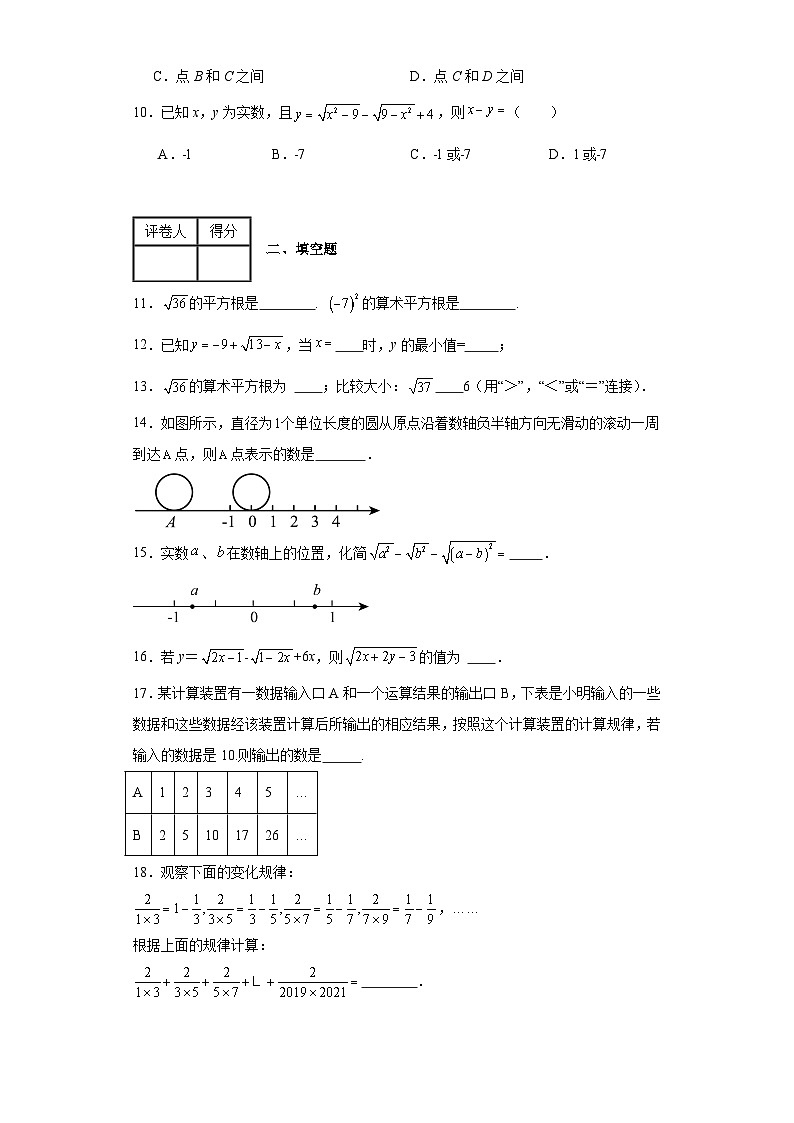 C．点B和C之间 D．点C和D之间
10．已知x，y为实数，且y=√(x²−9)−√(9−x²)+4，则x−y=（ ）
A．-1 B．-7 C．-1或-7 D．1或-7
评卷人 得分
二、填空题
11．√36的平方根是________. (−7)²的算术平方根是________.
12．已知y=−9+√(13−x)，当x=____时，y的最小值=_____；
13．√36的算术平方根为 ____；比较大小：√37____6（用“＞”，“＜”或“＝”连接）．
14．如图所示，直径为1个单位长度的圆从原点沿着数轴负半轴方向无滑动的滚动一周
到达A点，则A点表示的数是_______．
A -1 0 1 2 3 4
15．实数a、b在数轴上的位置，化简√a²−√b²−√(a−b)²=_____．
a b
-1 0 1
16．若y＝√(2x−1)-√(1−2x)+6x，则√(2x+2y−3)的值为 ____．
17．某计算装置有一数据输入口A和一个运算结果的输出口B，下表是小明输入的一些
数据和这些数据经该装置计算后所输出的相应结果，按照这个计算装置的计算规律，若
输入的数据是10.则输出的数是_____.
A 1 2 3 4 5 …
B 2 5 10 17 26 …
18．观察下面的变化规律：
2/(1×3)=1−1/3,2/(3×5)=1/3−1/5,2/(5×7)=1/5−1/7,2/(7×9)=1/7−1/9，……
根据上面的规律计算：
2/(1×3)+2/(3×5)+2/(5×7)+L+2/(2019×2021)=________．